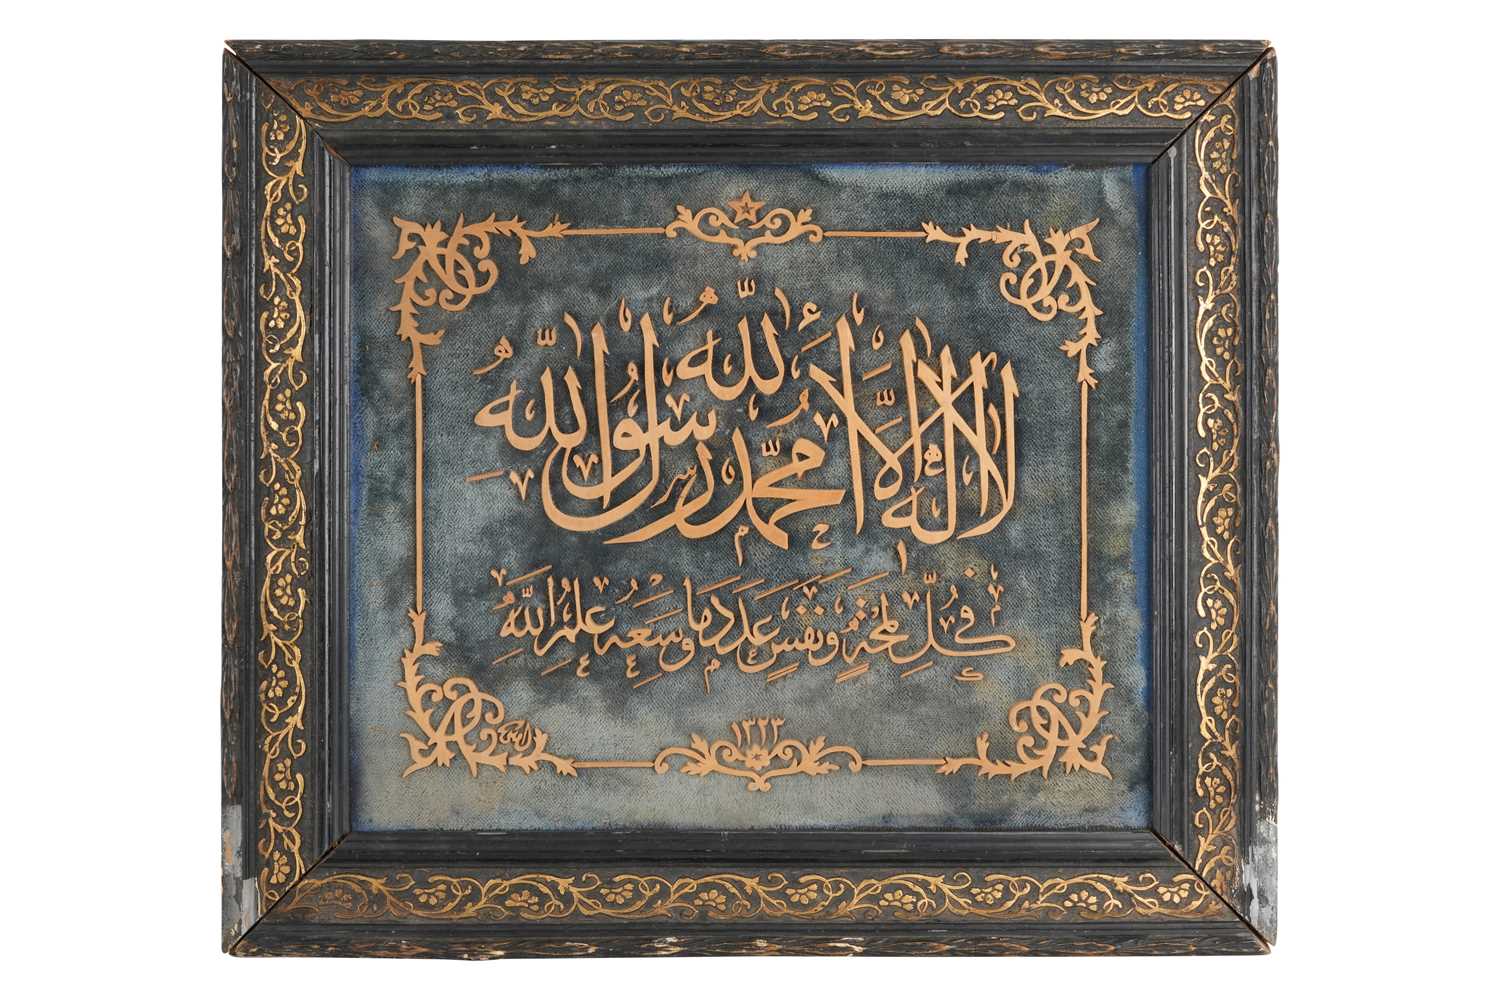 لا اله الا الله محمد رسول الله
في كل لمحة ونفس عدد ما وسعه علم الله
١٣٢٣